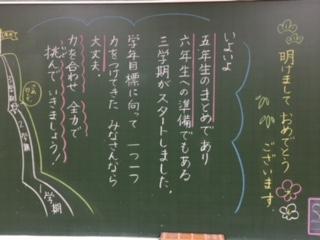 明けまして おめでとう
ございます。
いよいよ
五年生のまとめであり
六年生への準備でもある
三学期がスタートしました。
学年目標に向って 一つ一つ
力をつけてきた みなさんなら
大丈夫。
力を合わせ 全力で
挑んで いきましょう!
学期